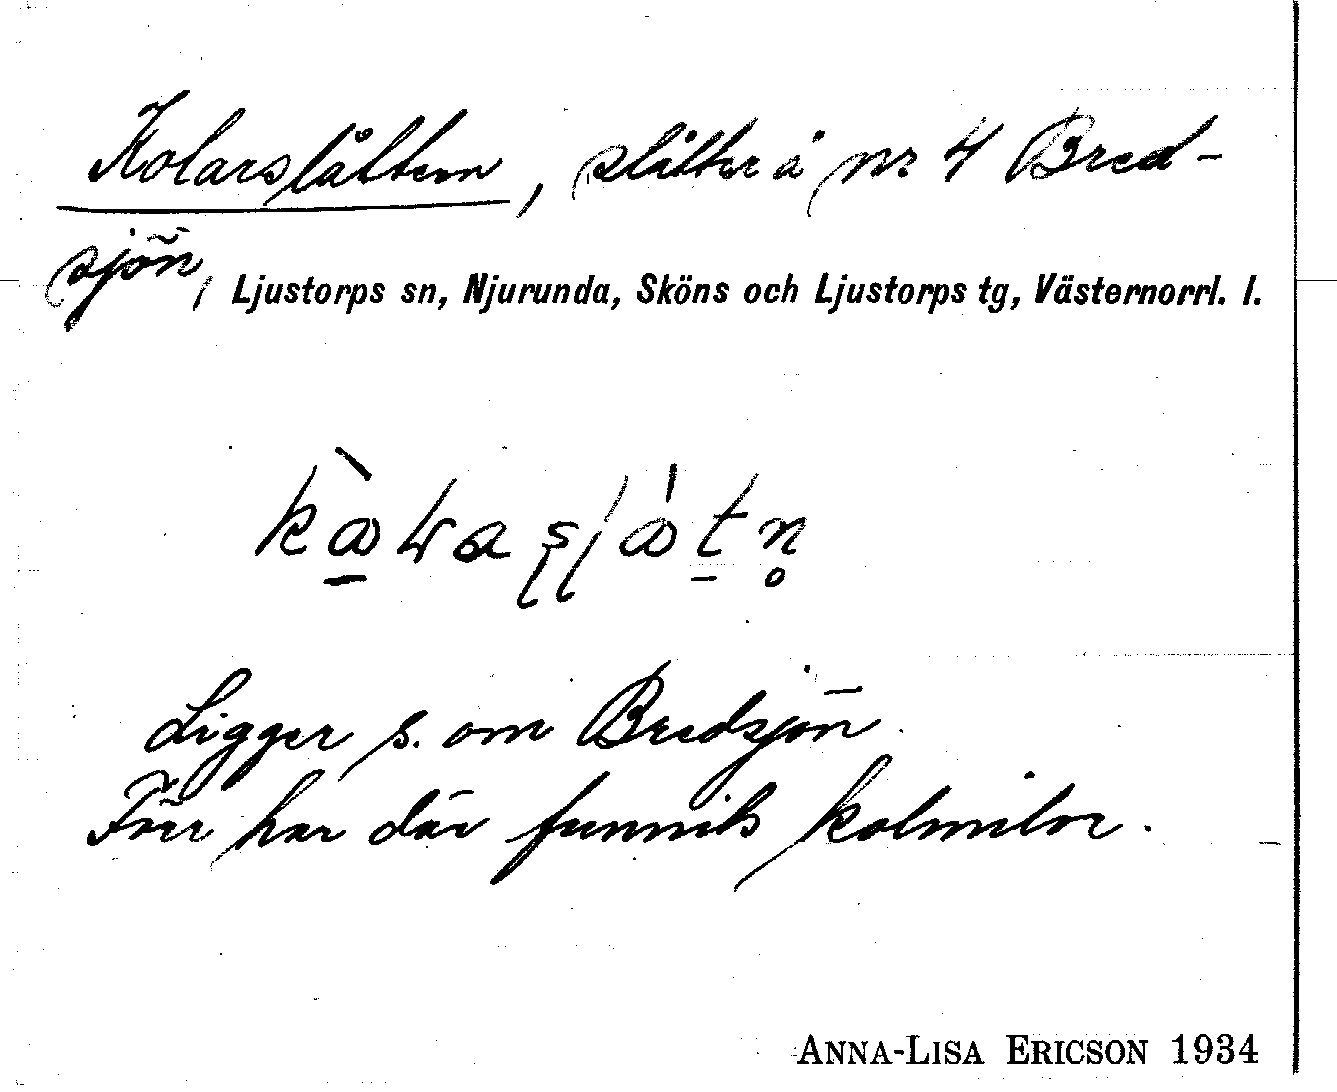 Kolarslåtten, slåtter å nr 4 Bred-
sjön, Ljustorps sn, Njurunda, Sköns och Ljustorps tg, Västernorrl. l.
Ligger s. om Bredsjön
Förr har där funnits kolmilor.
ANNA-LISA ERICSON 1934